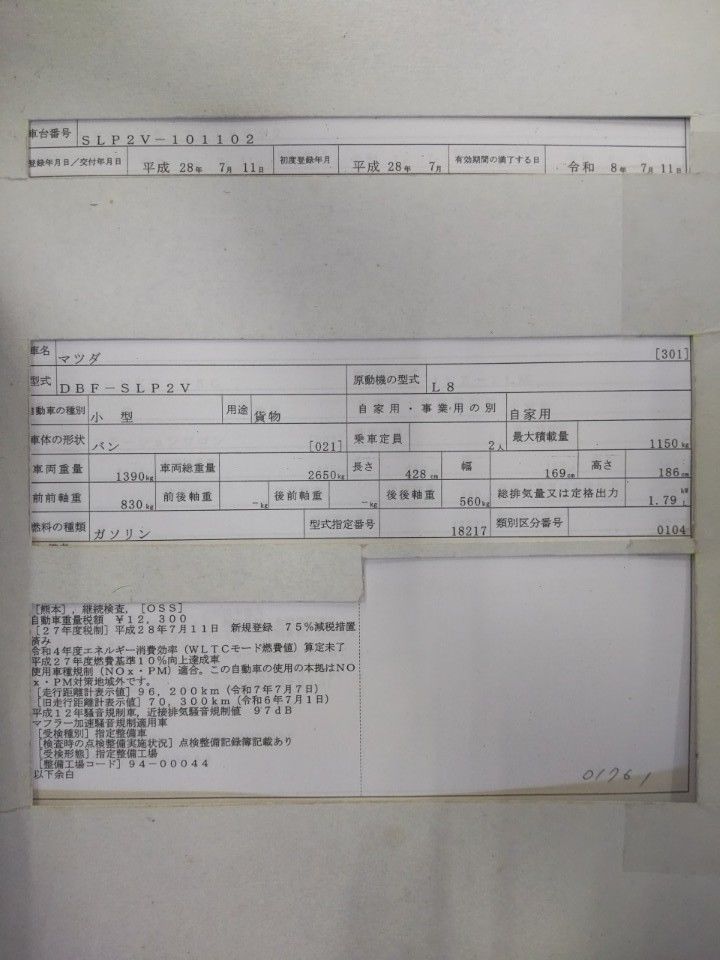 車台番号 SLP2V-101102
登録年月日/交付年月日 平成 28年 7月 11日 初度登録年月 平成 28年 7月 有効期間の満了する日 令和 8年 7月 11日
車名 マツダ [301]
型式 DBF-SLP2V 原動機の型式 L8
自動車の種別 小 型 用途 貨物 自家用・事業用の別 自家用
車体の形状 バン [021] 乗車定員 2人 最大積載量 1150kg
車両重量 1390kg 車両総重量 2650kg 長さ 428cm 幅 169cm 高さ 186cm
前前軸重 830kg 前後軸重 -kg 後前軸重 -kg 後後軸重 560kg 総排気量又は定格出力 1.79 kW L
燃料の種類 ガソリン 型式指定番号 18217 類別区分番号 0104
[熊本],継続検査,[OSS]
自動車重量税額 ¥12,300
[27年度税制]平成28年7月11日 新規登録 75%減税措置
済み
令和4年度エネルギー消費効率(WLTCモード燃費値)算定未了
平成27年度燃費基準10%向上達成車
使用車種規制(NOx・PM)適合。この自動車の使用の本拠はNO
x・PM対策地域外です。
[走行距離計表示値]96,200km(令和7年7月7日)
[旧走行距離計表示値]70,300km(令和6年7月1日)
平成12年騒音規制車,近接排気騒音規制値 97dB
マフラー加速騒音規制適用車
[受検種別]指定整備車
[検査時の点検整備実施状況]点検整備記録簿記載あり
[受検形態]指定整備工場
[整備工場コード]94-00044
以下余白